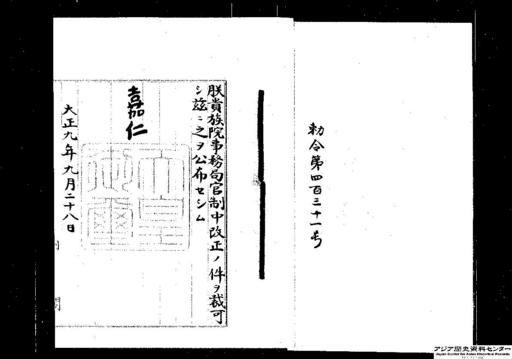 勅令第四百三十一号
朕貴族院事務局官制中改正ノ件ヲ裁可
シ茲ニ之ヲ公布セシム
嘉仁
大正九年九月二十八日
アジア歴史資料センター
Japan Center for Asian Historical Records